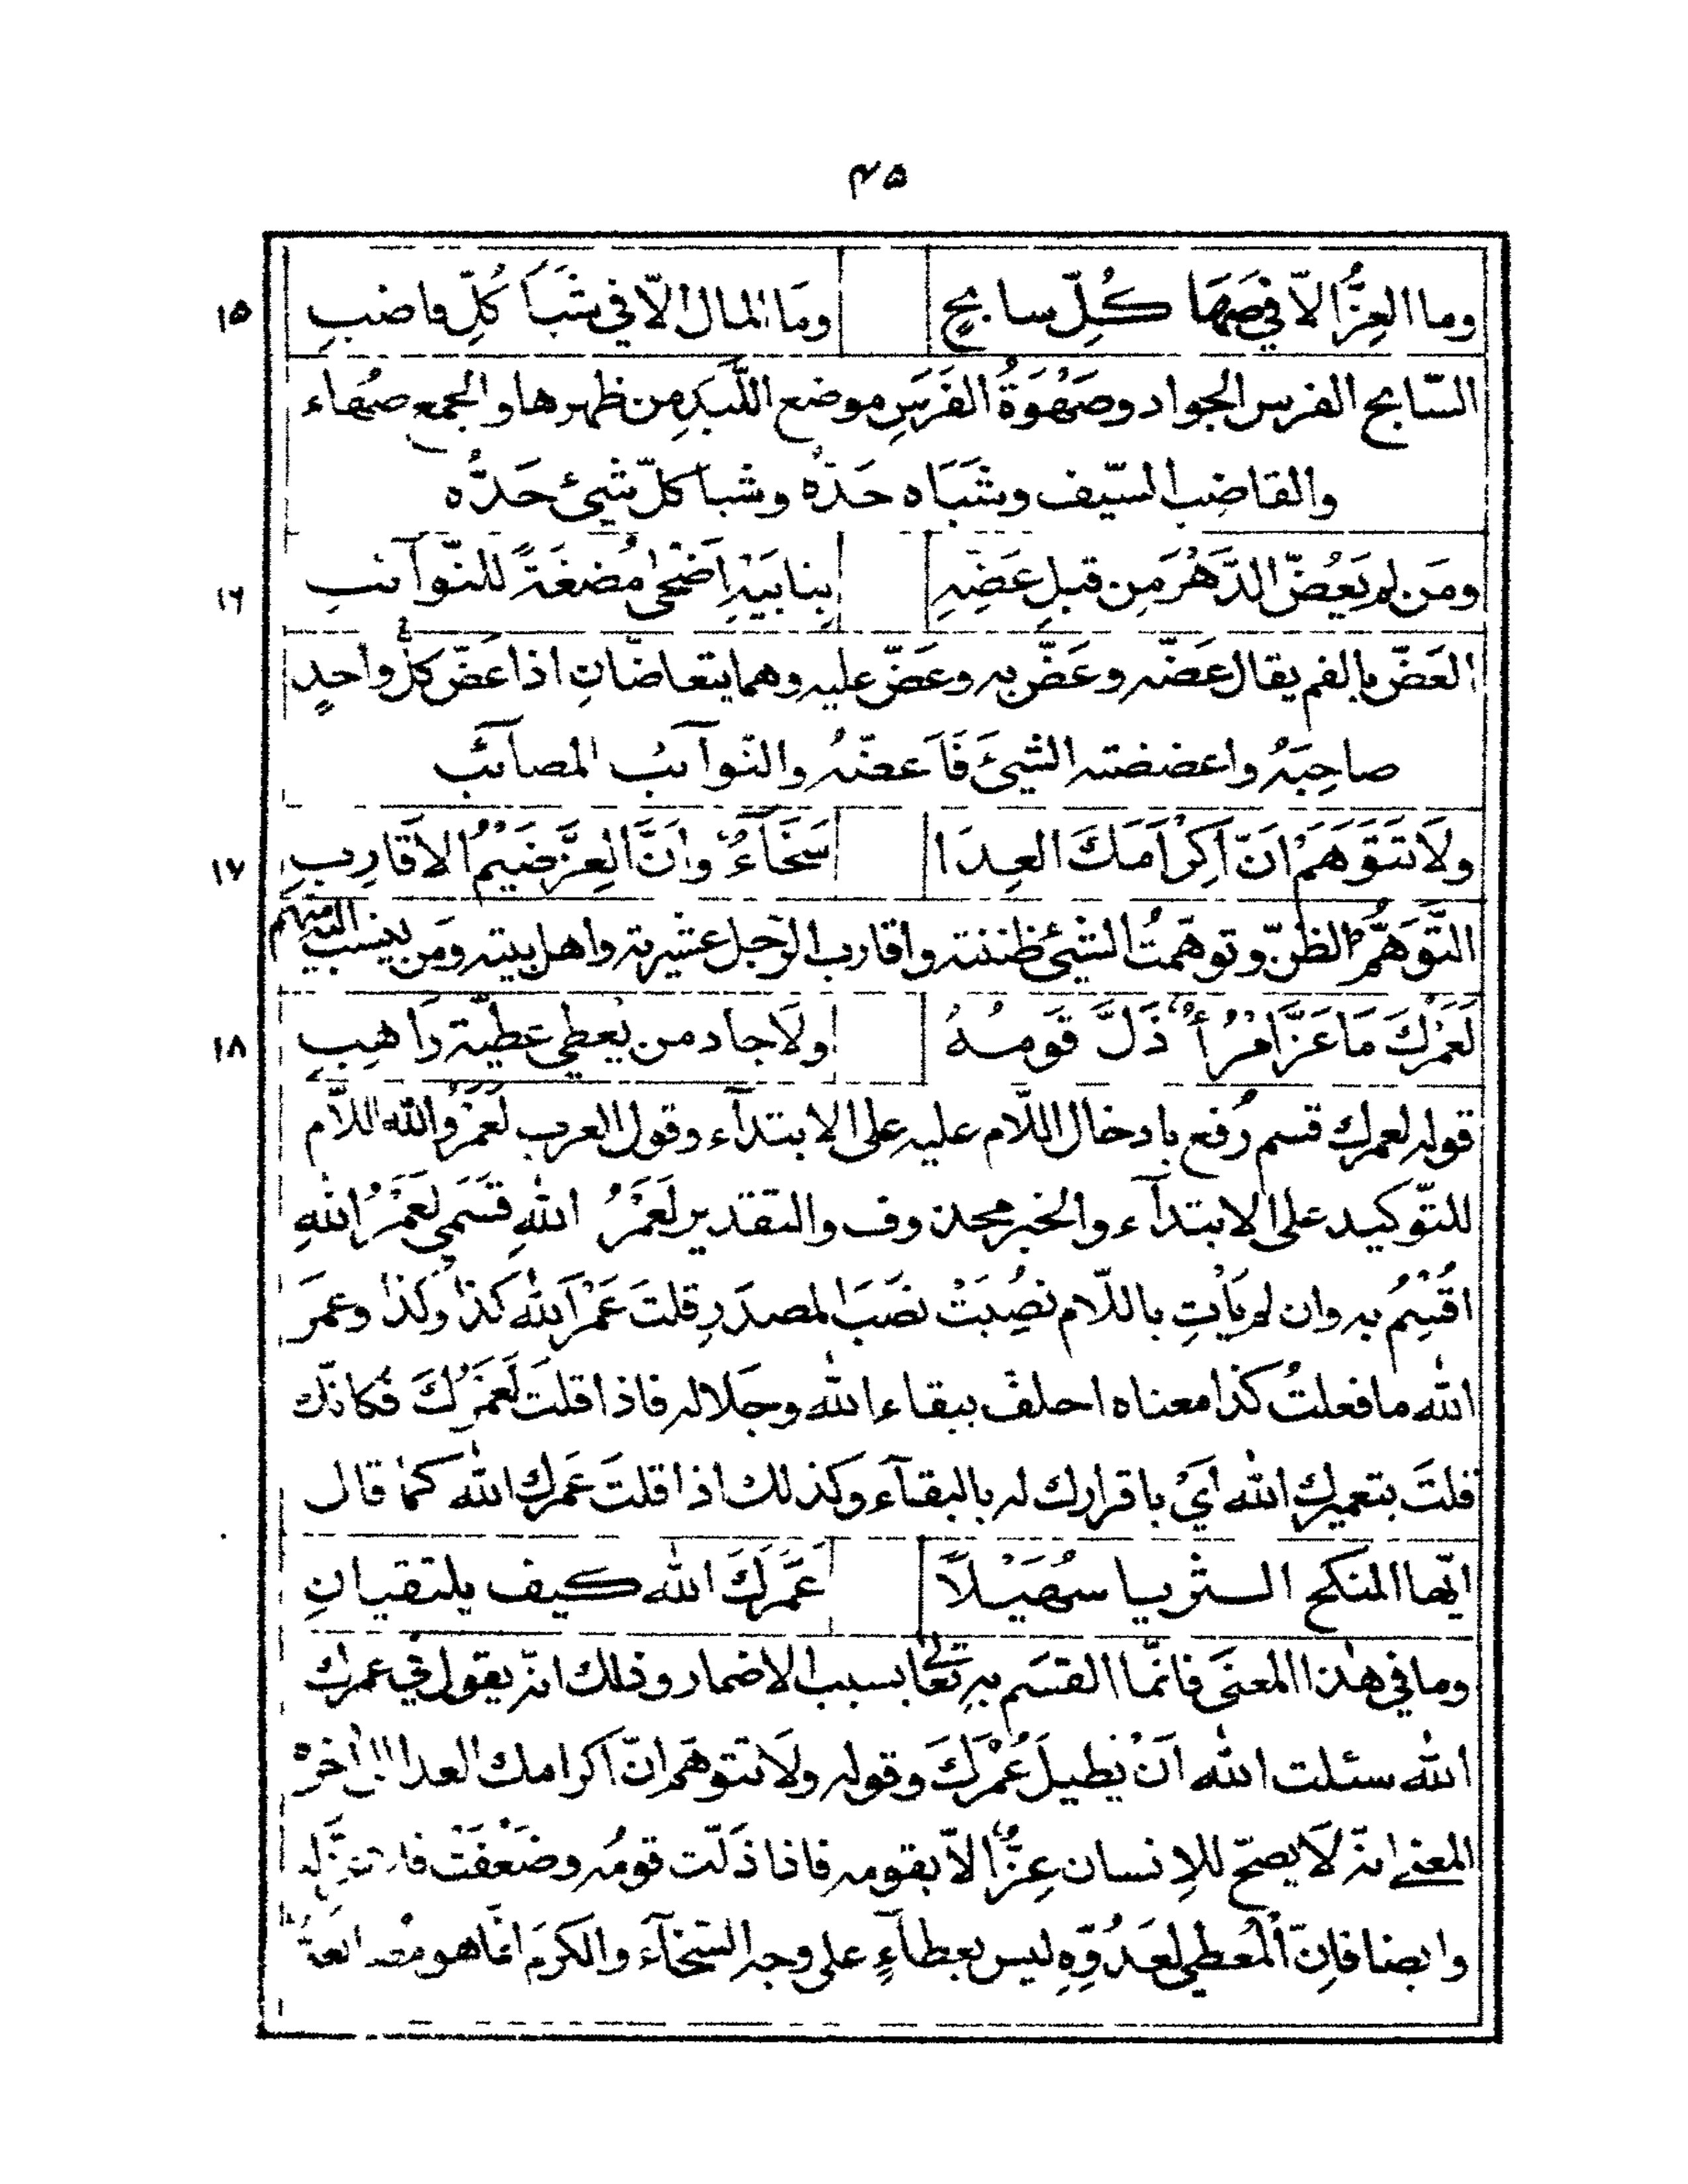 ٤٥
وما العِزُّ الّا في صَهَا كُلِّ سابحٍ وَمَا المال الّا في شَبَا كُلِّ قاضبِ ١٥
السّابح الفرس الجواد وصَهْوَةُ الفَرَسِ موضع اللَّبَدِ من ظهرها والجمع صُهاء
والقاضب السّيف وشَبَاه حَدّه وشبا كلّ شيئ حَدُّه
ومَن لم يَعُضّ الدَّهْرَ مِن قبلِ عَضِّهِ بِنابَيْهِ اَضْحٰى مُضغَةً للنّوآئبِ ١٦
العَضّ بالفم يقال عَضّه وعَضّ به وعَضّ عليه وهما يتعاضّانِ اذا عَضّ كلّ واحدٍ
صاحِبَهُ واعضضته الشيئَ فَاَعضّهُ والنّوآئبُ المصآئب
ولَا تَتَوَهَّمْ اَنّ اَكِرْامَكَ العِدَا سَخَآءٌ وَاَنَّ العِزَّ ضَيْمُ الاَقَارِبِ ١٧
التَّوَهُّم الظنّ وتوهّمتُ الشيئ ظننته واقارب الرّجل عشيرته واهل بيته ومَن ينسب اليه منهم
لَعَمْرُكَ مَا عَزَّ امْرُأٌ ذَلَّ قَومُهُ ولَا جاد من يُعطي عَطيّة رَاهِبِ ١٨
قوله لعمرك قسم رُفع بادخال اللّام عليه على الابتدآء وقول العرب لَعَمْرُ والله اللّام
للتّوكيد على الابتدآء والخبر محذوف والتقدير لَعَمْرُ اللهِ قَسَمي لَعَمْرُ اللهِ
اقْسِمُ به وان لم يَأتِ باللّام نُصِبَتْ نَصَبَ المصدَرِ قلتَ عَمْرَ الله كذا وكذا وعمرَ
الله ما فعلتُ كذا معناه احلف ببقاء الله وجَلاله فاذا قلتَ لَعَمْرُكَ فكانّك
قلتَ بتعميرك الله اَيْ باقرارك له بالبقآء وكذلك اذا قلتَ عَمرك الله كما قال
ايّها المنكح الثريا سُهَيْلاً عَمَّرَكَ الله كيف يلتقيانِ
وما في هذا المعنَى فانّما القسَم بِهِ تعالى بسبب الاضمار وذلك انّه يقول في عمرك
الله سئلت الله اَنْ يُطيلَ عُمْرَكَ وقوله ولَا تتوهّم انّ اكرامك العدا الى اخره
المعنى انّه لَا يصحّ للاِنسان عِزٌّ الّا بقومه فاذا ذَلّت قومُه وضَعْفَتْ فلا عزّ له
وايضا فاِنّ المُعطي لعَدُوِّهِ ليس بعطآءٍ على وجه السّخآء والكرَم انّما هو مصانعةٌ